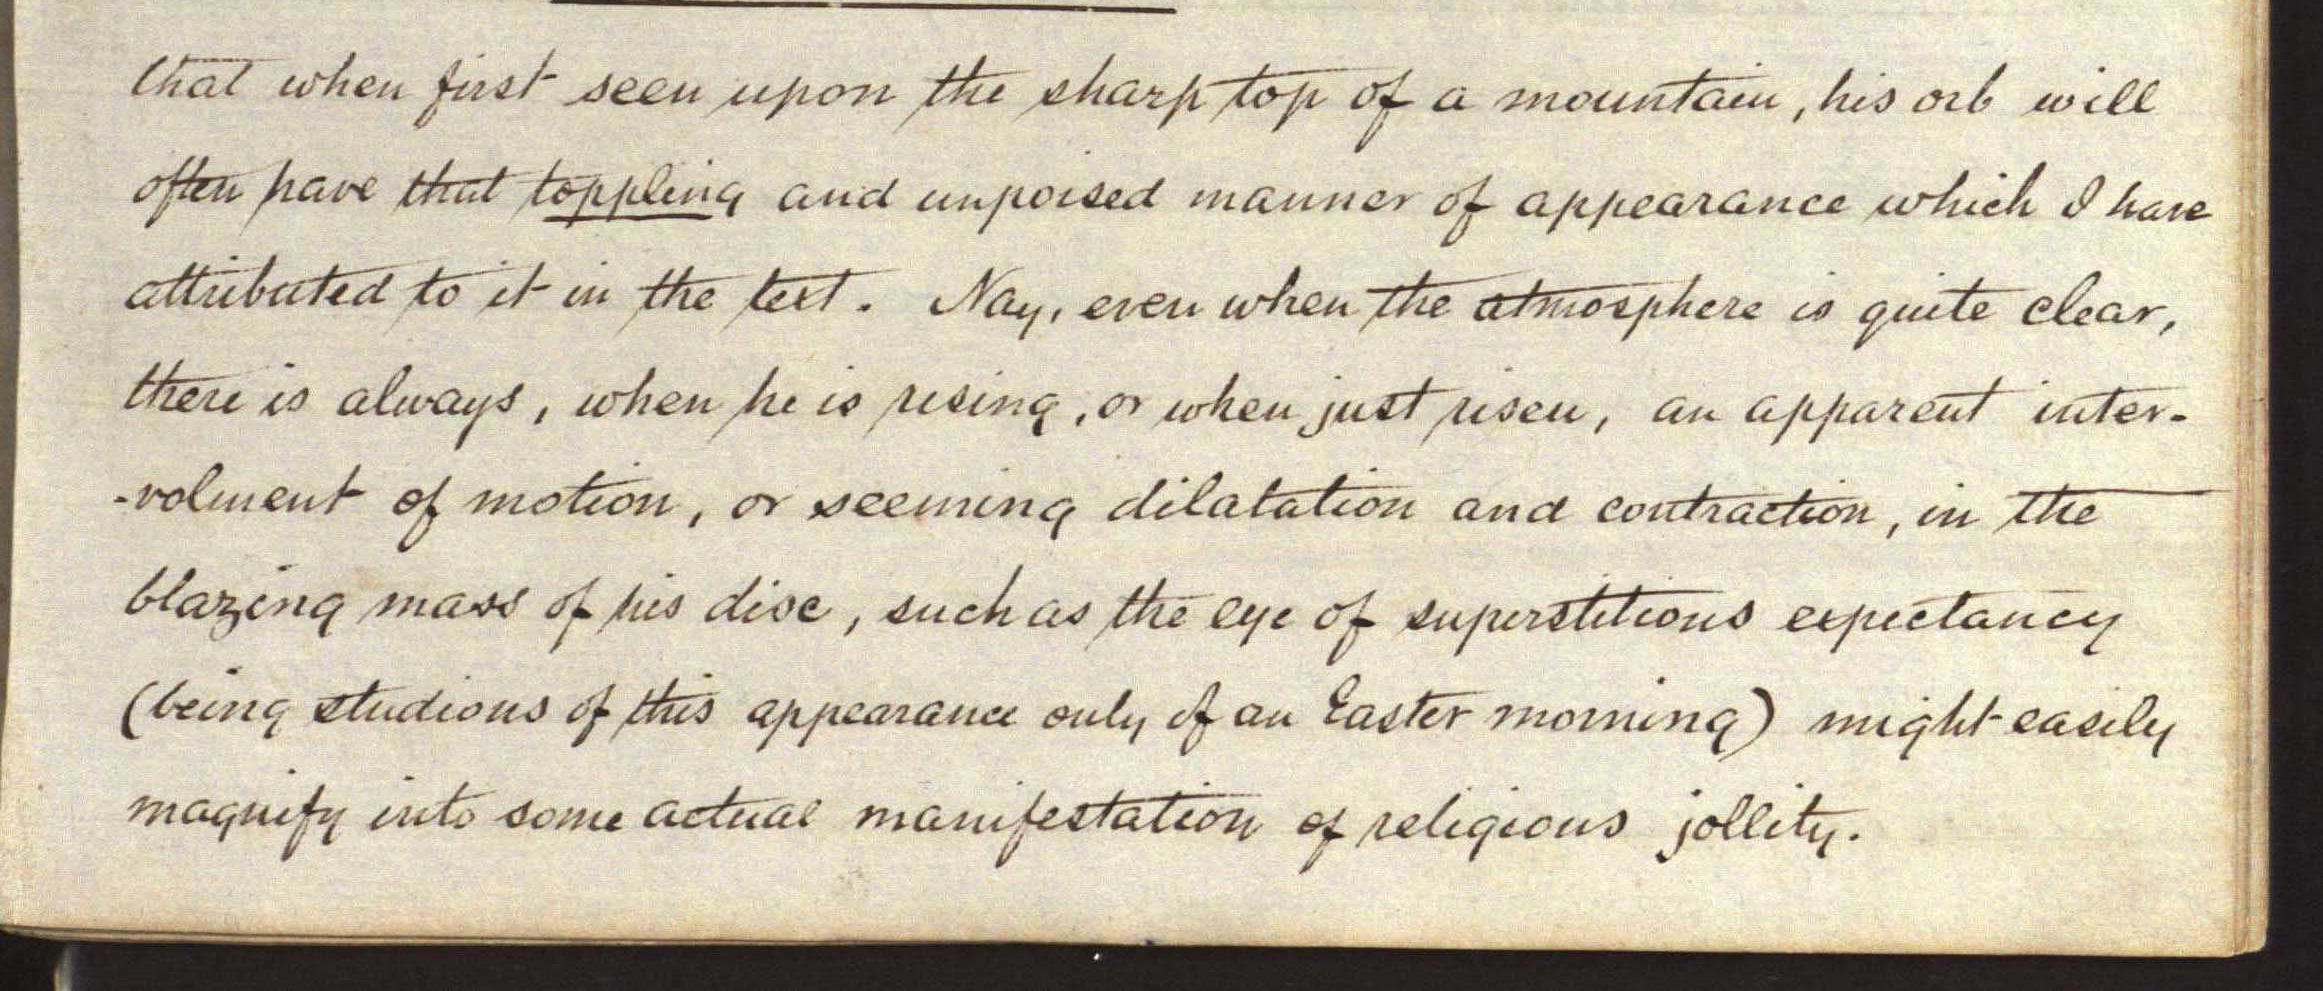 that when first seen upon the sharp top of a mountain, his orb will
often have that toppling and unpoised manner of appearance which I have
attributed to it in the text. Nay, even when the atmosphere is quite clear,
there is always, when he is rising, or when just risen, an apparent inter-
-volment of motion, or seeming dilatation and contraction, in the
blazing mass of his disc, such as the eye of superstitious expectancy
(being studious of this appearance only of an Easter morning) might easily
magnify into some actual manifestation of religious jollity.